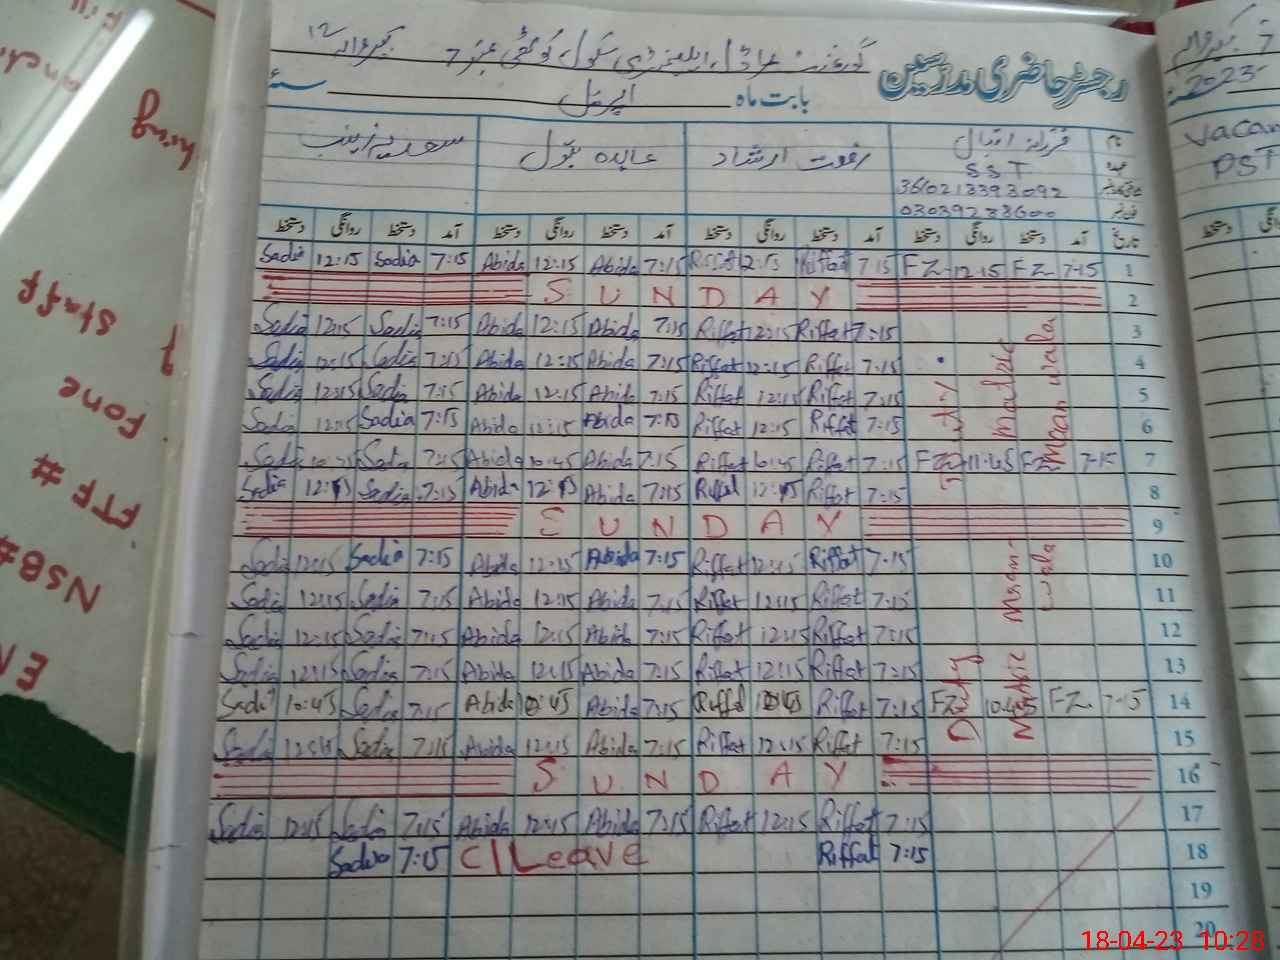 رجسٹر حاضری مدرسین
گورنمنٹ ماڈل ایلیمنٹری سکول کوٹھی نمبر 7
بابت ماہ اپریل سنہ
نام فرزانہ اقبال رفعت ارشاد عابدہ بتول سعدیہ زینب
عہدہ SST
3610213393092
03039238600
تاریخ آمد دستخط روانگی دستخط آمد دستخط روانگی دستخط آمد دستخط روانگی دستخط آمد دستخط روانگی دستخط
Sadia 12:15 Sadia 7:15 Abida 12:15 Abida 7:15 Riffat 12:15 Riffat 7:15 FZ 12:15 FZ 7:15 1
SUNDAY 2
Sadia 12:15 Sadia 7:15 Abida 12:15 Abida 7:15 Riffat 12:15 Riffat 7:15 3
Sadia 12:15 Sadia 7:15 Abida 12:15 Abida 7:15 Riffat 12:15 Riffat 7:15 4
Sadia 12:15 Sadia 7:15 Abida 12:15 Abida 7:15 Riffat 12:15 Riffat 7:15 5
Sadia 12:15 Sadia 7:15 Abida 12:15 Abida 7:15 Riffat 12:15 Riffat 7:15 6
Sadia 10:45 Sadia 7:15 Abida 10:45 Abida 7:15 Riffat 10:45 Riffat 7:15 FZ 11:45 FZ 7:15 7
Sadia 12:15 Sadia 7:15 Abida 12:15 Abida 7:15 Riffat 12:15 Riffat 7:15 8
SUNDAY 9
Sadia 12:15 Sadia 7:15 Abida 12:15 Abida 7:15 Riffat 12:15 Riffat 7:15 10
Sadia 12:15 Sadia 7:15 Abida 12:15 Abida 7:15 Riffat 12:15 Riffat 7:15 11
Sadia 12:15 Sadia 7:15 Abida 12:15 Abida 7:15 Riffat 12:15 Riffat 7:15 12
Sadia 12:15 Sadia 7:15 Abida 12:15 Abida 7:15 Riffat 12:15 Riffat 7:15 13
Sadia 10:45 Sadia 7:15 Abida 10:45 Abida 7:15 Riffat 10:45 Riffat 7:15 FZ 10:45 FZ 7:15 14
Sadia 12:15 Sadia 7:15 Abida 12:15 Abida 7:15 Riffat 12:15 Riffat 7:15 15
SUNDAY 16
Sadia 12:15 Sadia 7:15 Abida 12:15 Abida 7:15 Riffat 12:15 Riffat 7:15 17
Sadia 7:15 C/Leave Riffat 7:15 18
19
20
Duty Matric
Maan wala
Duty Matric
Maan wala
2023
PST
دستخط
Staff
Fone
FTF #
NSB#
18-04-23 10:28